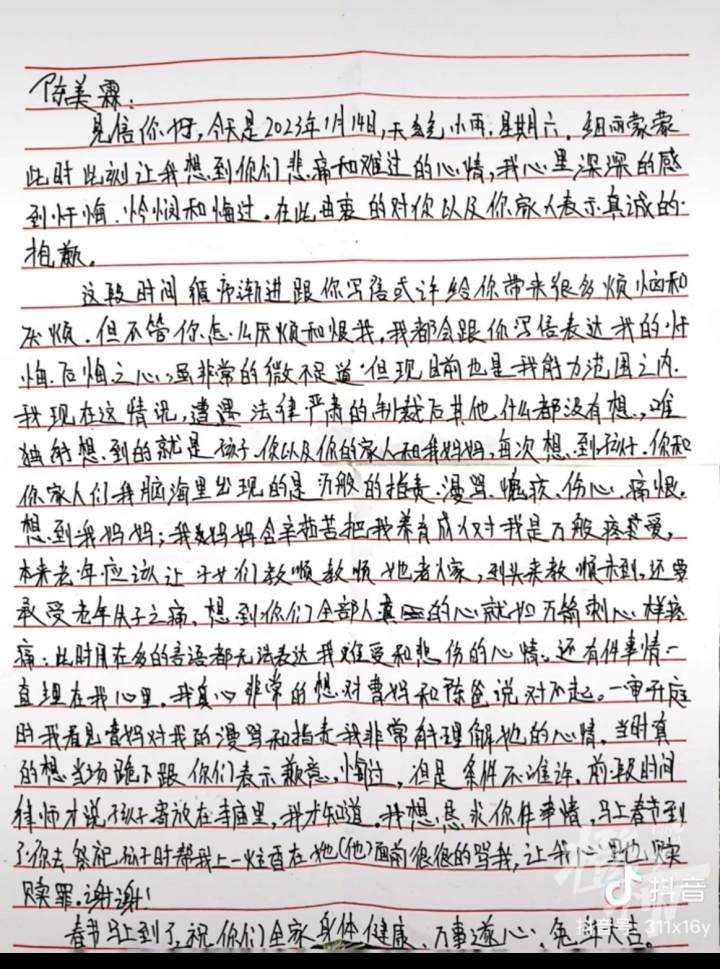 陈美霖:
见信你好,今天是2023年1月14日,天气小雨.星期六.细雨蒙蒙
此时此刻让我想到你们悲痛和难过的心情,我心里深深的感
到忏悔.怜悯和悔过.在此由衷的对你以及你家人表示真诚的
抱歉。
这段时间循序渐进跟你写信或许给你带来很多烦恼和
厌烦.但不管你怎么厌烦和恨我,我都会跟你写信表达我的忏
悔.后悔之心,虽非常的微不足道.但现目前也是我能力范围之内.
我现在这情况,遭遇法律严肃的制裁后其他什么都没有想,唯
独能想到的就是孩子.你以及你的家人和我妈妈,每次想到孩子.你和
你家人们我脑海里出现的是万般的指责.漫骂.愧疚.伤心.痛恨.
想到我妈妈;我妈妈含辛茹苦把我养育成人对我是万般疼爱,
本来老年应该让子女们孝顺孝顺她老人家,到头来孝顺未到,还要
承受老年失子之痛.想到你们全部人真的心就如万箭刺心样疼
痛;此时用在多的言语都无法表达我难受和悲伤的心情。还有件事情一
直埋在我心里.我真心非常的想对曹妈和陈爸说对不起。一审开庭
时我看见曹妈对我的漫骂和指责我非常能理解她的心情.当时真
的想当场跪下跟你们表示歉意.悔过,但是条件不准许.前段时间
律师才说孩子寄放在寺庙里,我才知道.我想恳求你件事情,马上春节到
了你去祭祀孩子时帮我上一炷香在她(他)面前很很的骂我,让我心里也赎
赎罪.谢谢!
春节马上到了,祝你们全家身体健康、万事遂心、兔年大吉。
抖音
抖音号:311x16y